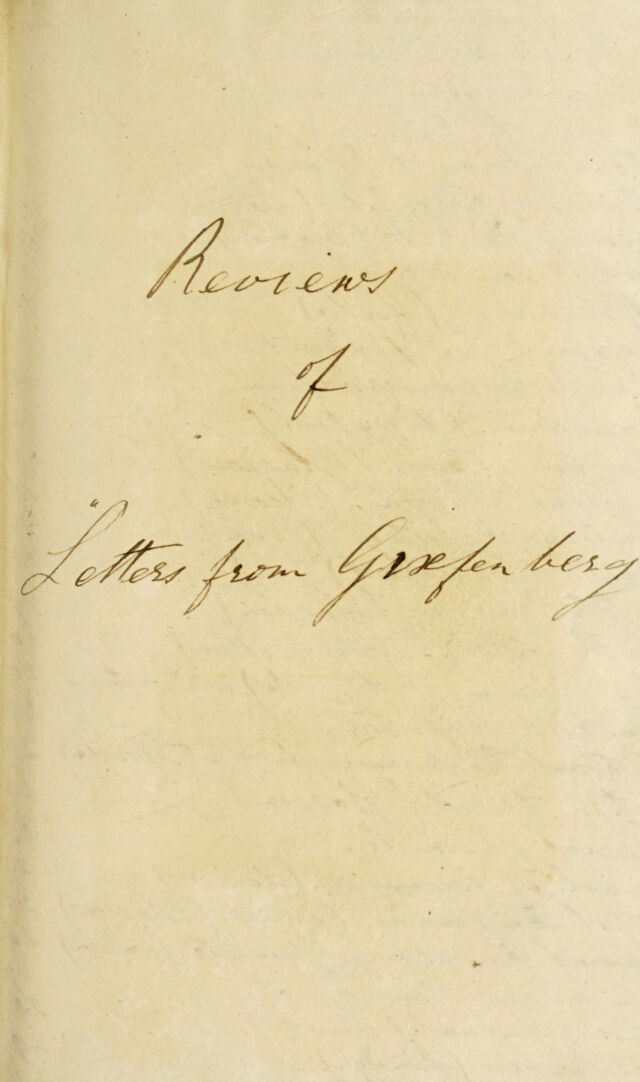 Reviews
of
"Letters from Græfenberg